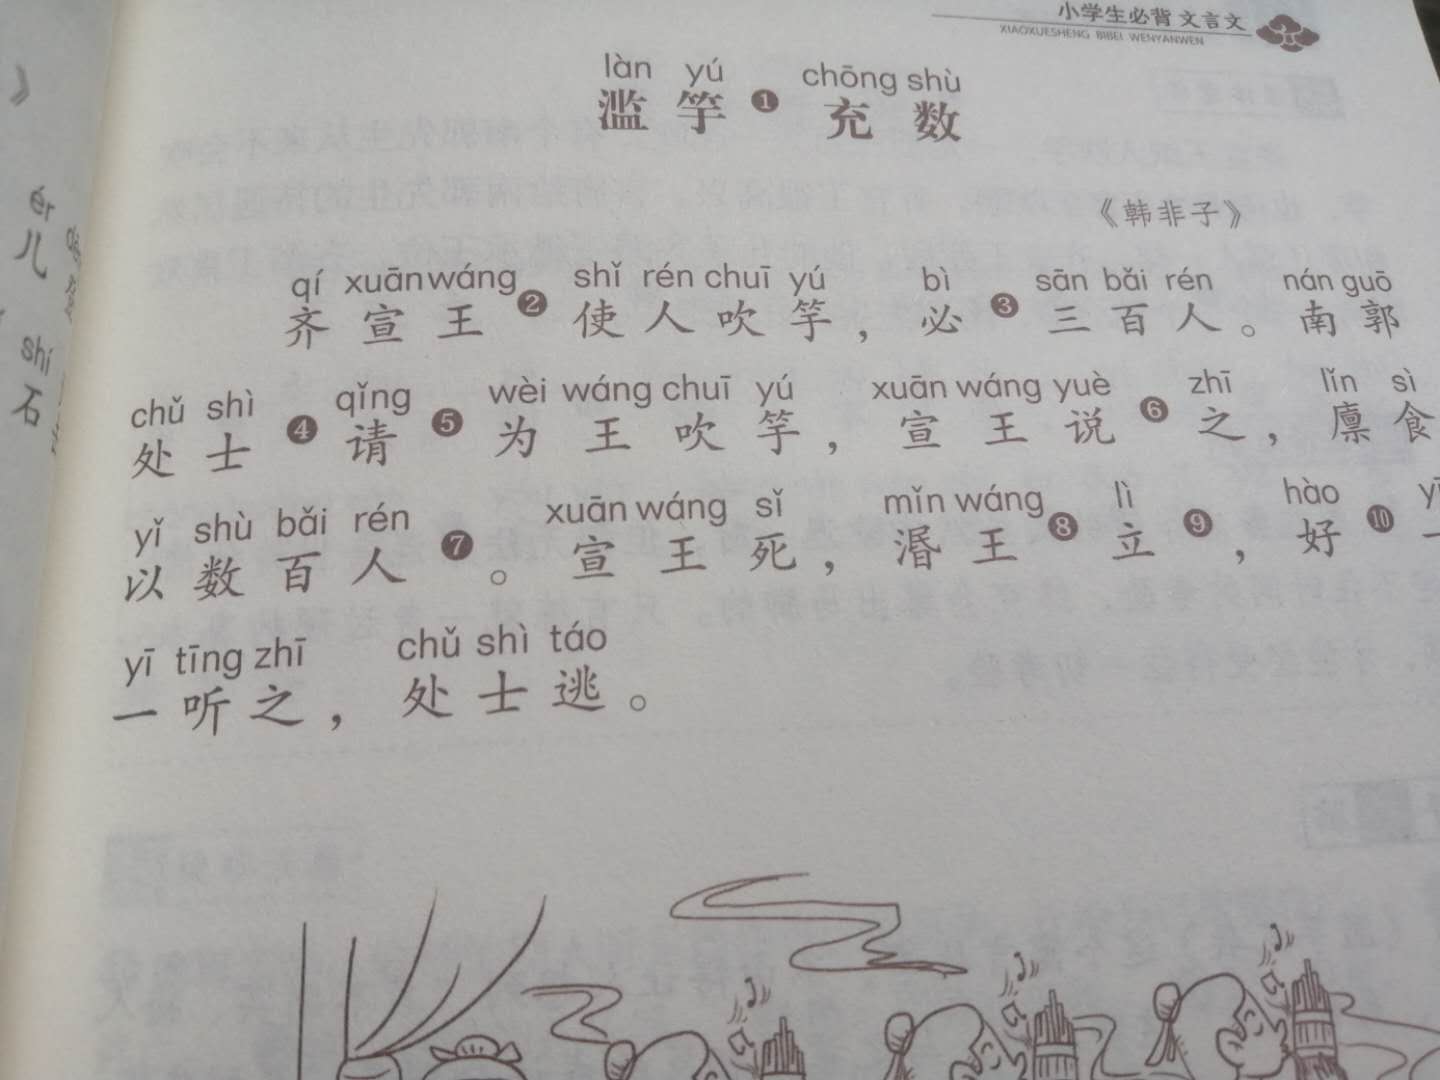 小学生必背 文言文
XIAOXUESHENG BIBEI WENYANWEN
làn yú chōng shù
滥竽❶充数
《韩非子》
qí xuānwáng shǐ rén chuī yú bì sān bǎi rén nán guō
齐宣王❷使人吹竽，必❸三百人。南郭
chǔ shì qǐng wèi wáng chuī yú xuān wáng yuè zhī lǐn sì
处士❹请❺为王吹竽，宣王说❻之，廪食
yǐ shù bǎi rén xuān wáng sǐ mǐn wáng lì hào yī
以数百人❼。宣王死，湣王❽立❾，好❿一
yī tīng zhī chǔ shì táo
一听之，处士逃。
》
ér
儿
shí
石